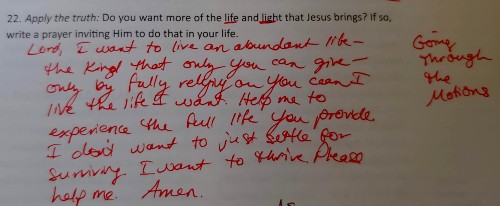 22. Apply the truth: Do you want more of the life and light that Jesus brings? If so,
write a prayer inviting Him to do that in your life.
Lord, I want to live an abundant life-
the kind that only you can give-
only by fully relying on you can I
live the life I want. Help me to
experience the full life you provide.
I don't want to just settle for
surviving I want to thrive. Please
help me. Amen.
Going
Through
the
Motions